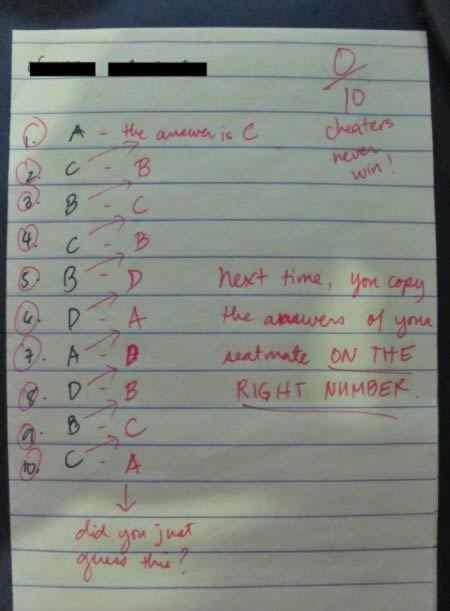 0/10
cheaters
never
win!
1. A - the answer is C
2. C - B
3. B - C
4. C - B
5. B - D
6. D - A
7. A - D
8. D - B
9. B - C
10. C - A
next time, you copy
the answers of your
seatmate ON THE
RIGHT NUMBER.
did you just
guess this?